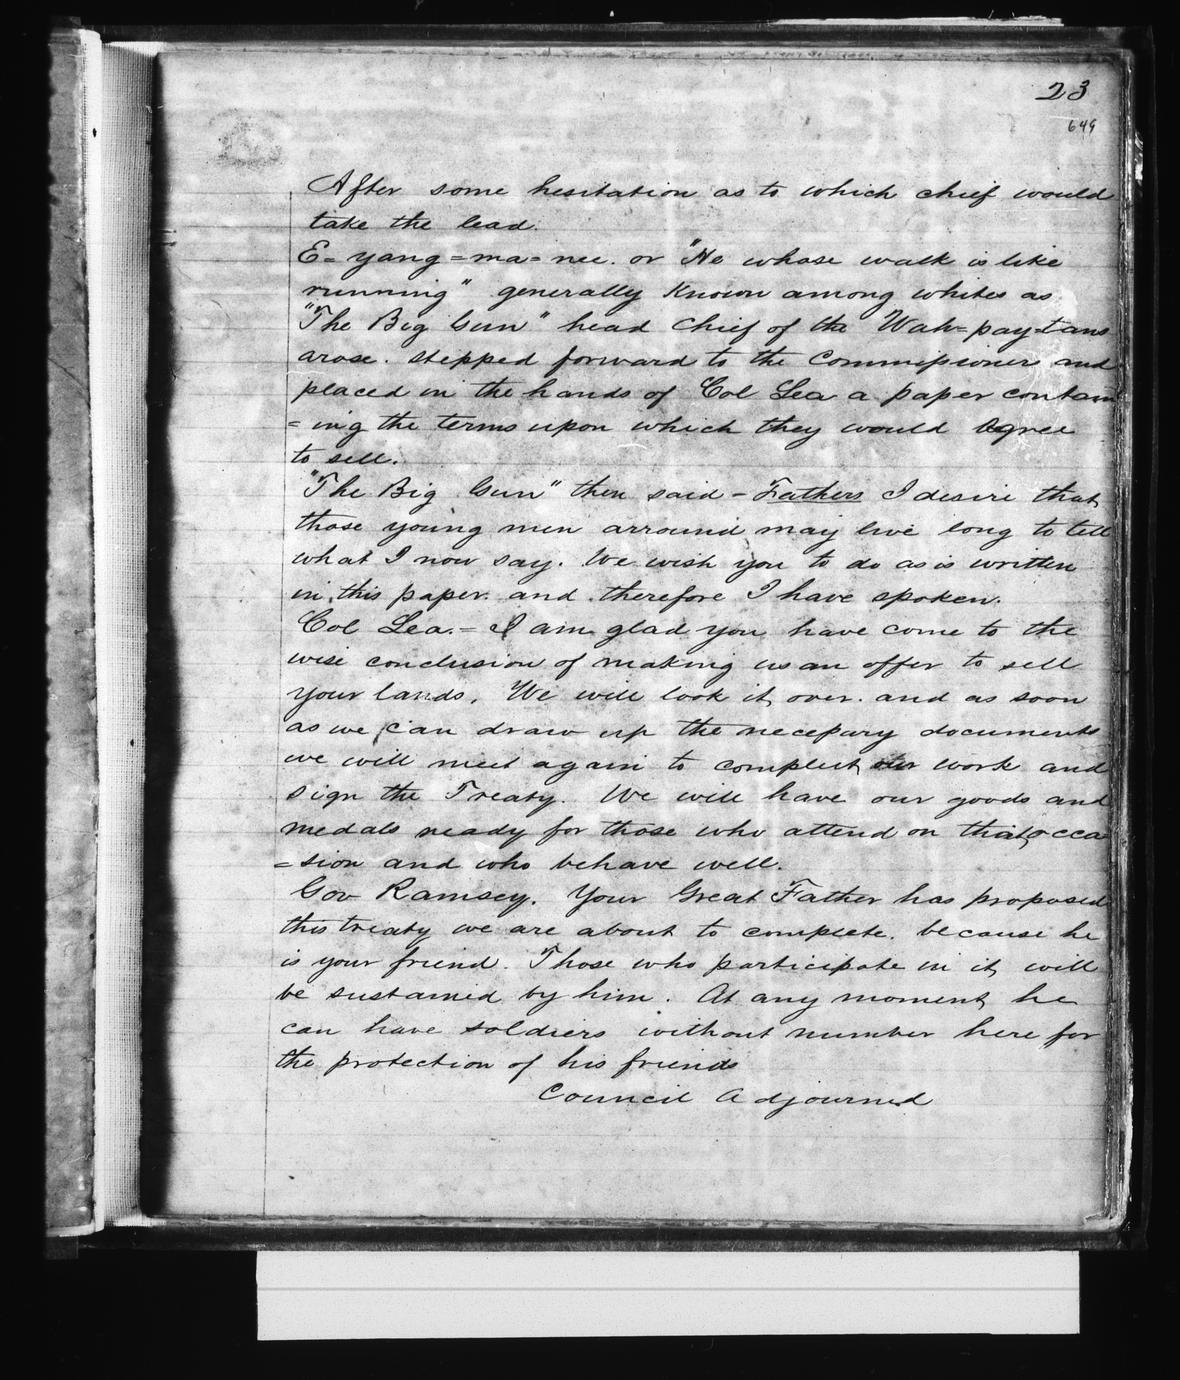 23
649
After some hesitation as to which chief would
take the lead.
E= yang =ma= nee. or "He whose walk is like
running" generally Known among whites as
"The Big Gun" head Chief of the Wah=pay=tans
arose. stepped forward to the Commissioner and
placed in the hands of Col Lea a paper contain
=ing the terms upon which they would Agree
to sell.
"The Big Gun" then said - Fathers I desire that
those young men arround may live long to tell
what I now say. We wish you to do as is written
in this paper. and therefore I have spoken.
Col Lea. = I am glad you have come to the
wise conclusion of making us an offer to sell
your lands. We will look it over. and as soon
as we can draw up the necessary documents
we will meet again to complete our work and
sign the Treaty. We will have our goods and
medals ready for those who attend on that occa
=sion and who behave well.
Gov Ramsey. Your Great Father has proposed
this treaty we are about to complete. because he
is your friend. Those who participate in it will
be sustained by him. At any moment he
can have soldiers without number here for
the protection of his friends
Council Adjourned